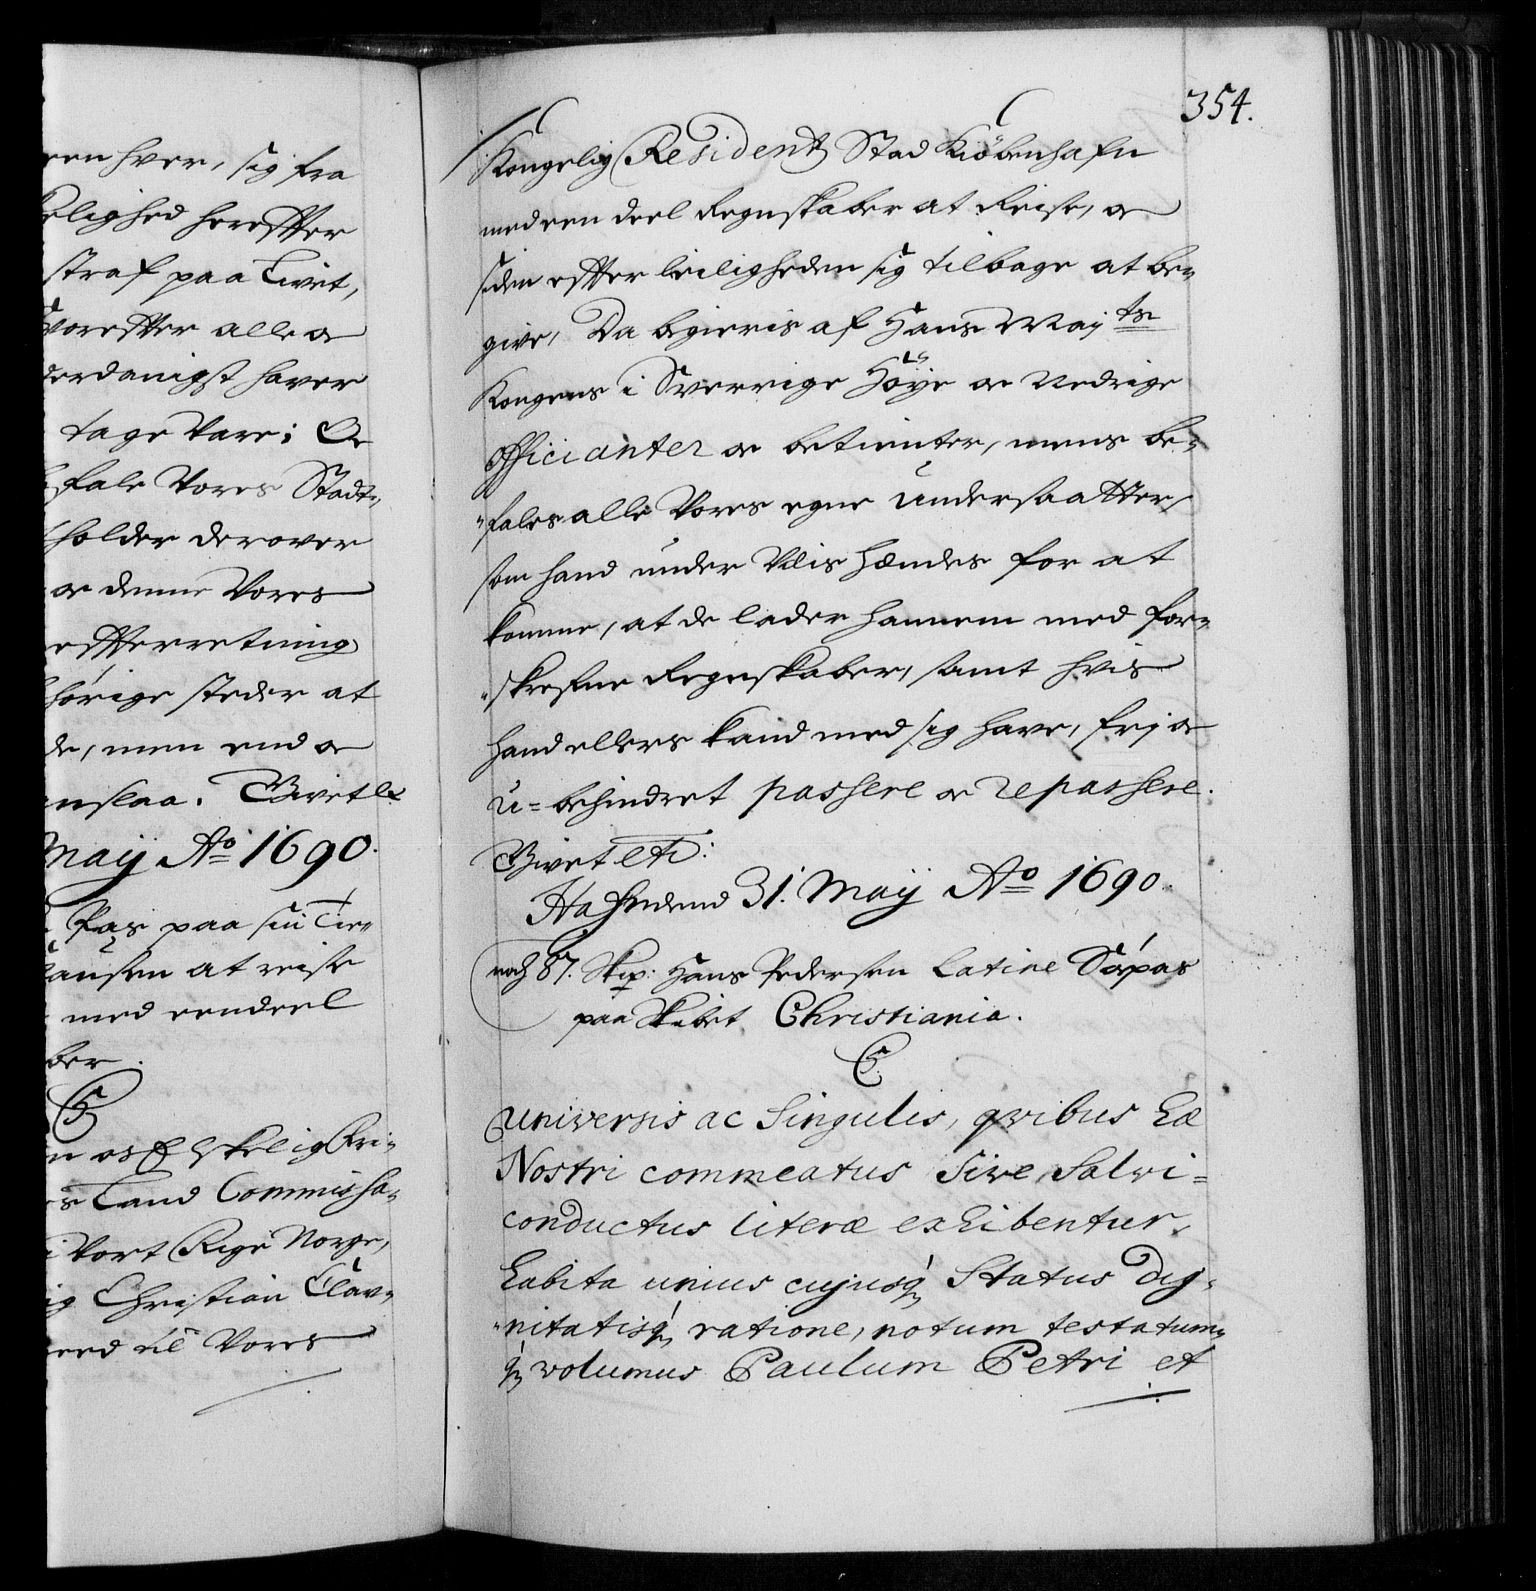 een hver, sig fra
elighed herefter
straf paa Livet,
vorefter alle oc
derdanigst haver
tage vare; Oc
fale Vores Stadt-
holder derover
oc denne Vores
efterretning
hörige steder at
de, men end oc
enslaa. Givet etc
Maij Ao 1690.
Pas paa sin Tie-
Clausen at reise
med eendeel
ber.
C5
n os Elskelig Kri-
s Land Commissa-
i Vort Rige Norge,
ig Christian Clau-
eed til Vores
354.
Kongelig Residentz Stad Kiöbenhafn
med een deel Regnskaber at Reise, oc
siden efter leiligheden sig tilbage at be-
give, Da begieris af Hans Maij ts
Kongens i Sverrige Höÿe oc Nedrige
Officianter oc betiente, mens be-
fales alle Vores egne Undersaatter,
som hand under Veis hændes for at
komme, at de lader hannem med for-
skrefne Regnskaber, samt hvis
hand ellers kand med sig have, frj oc
u-behindret passere oc repassere.
Givet etc:
Hafn den 31. Maij Ao 1690.
noch 87. Skip: Hans Pedersen Latine Söpas
paa Skibet Christiania.
C5.
Universis ac Singulis, qvibus hæ
Nostri commeatus Sive Salvi-
conductus literæ exhibentur,
habita unius cujusq Status Dig-
nitatisq ratione, notum testatum-
q volumus Paulum Petri et